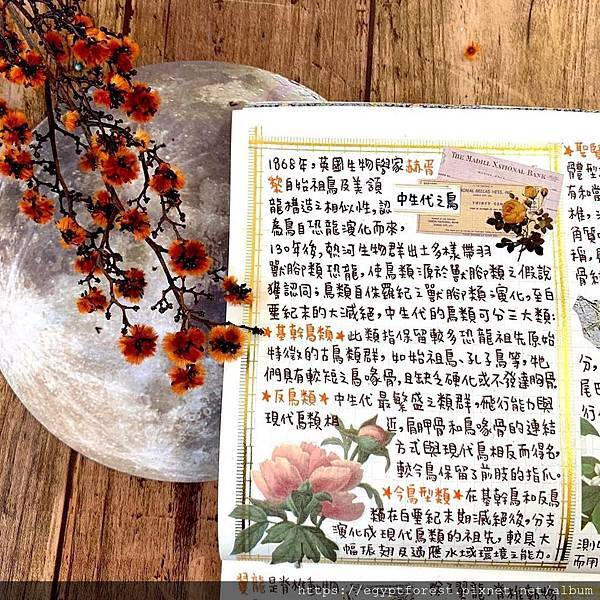 1868年,英國生物學家赫胥
黎自始祖鳥及美頜
龍構造之相似性,認
為鳥自恐龍演化而來,
THE MADILL NATIONAL BANK
中生代之鳥
130年後,熱河生物群出土多樣帶羽
獸腳類恐龍,使鳥類源於獸腳類之假說
獲認同;鳥類自侏羅紀之獸腳類演化,至白
堊紀末的大滅絕,中生代的鳥類可分三大類:
★基幹鳥類★此類指保留較多恐龍祖先原始
特徵的古鳥類群,如始祖鳥、孔子鳥等,牠
們具有較短之鳥喙骨,且缺乏硬化或不發達胸骨
★反鳥類★中生代最繁盛之類群,飛行能力與
現代鳥類相近,肩胛骨和鳥喙骨的連結
方式與現代鳥相反而得名,
較今鳥保留了前肢的指爪。
★今鳥型類★在基幹鳥和反鳥
類在白堊紀末期滅絕後,分支
演化成現代鳥類的祖先,較具大
幅振翅及適應水域環境之能力。
翼龍是脊椎動物
體型
有和當
椎,
角質
稱,
骨
分,
尾巴
測
而用
https://egyptforest.pixnet.net/album